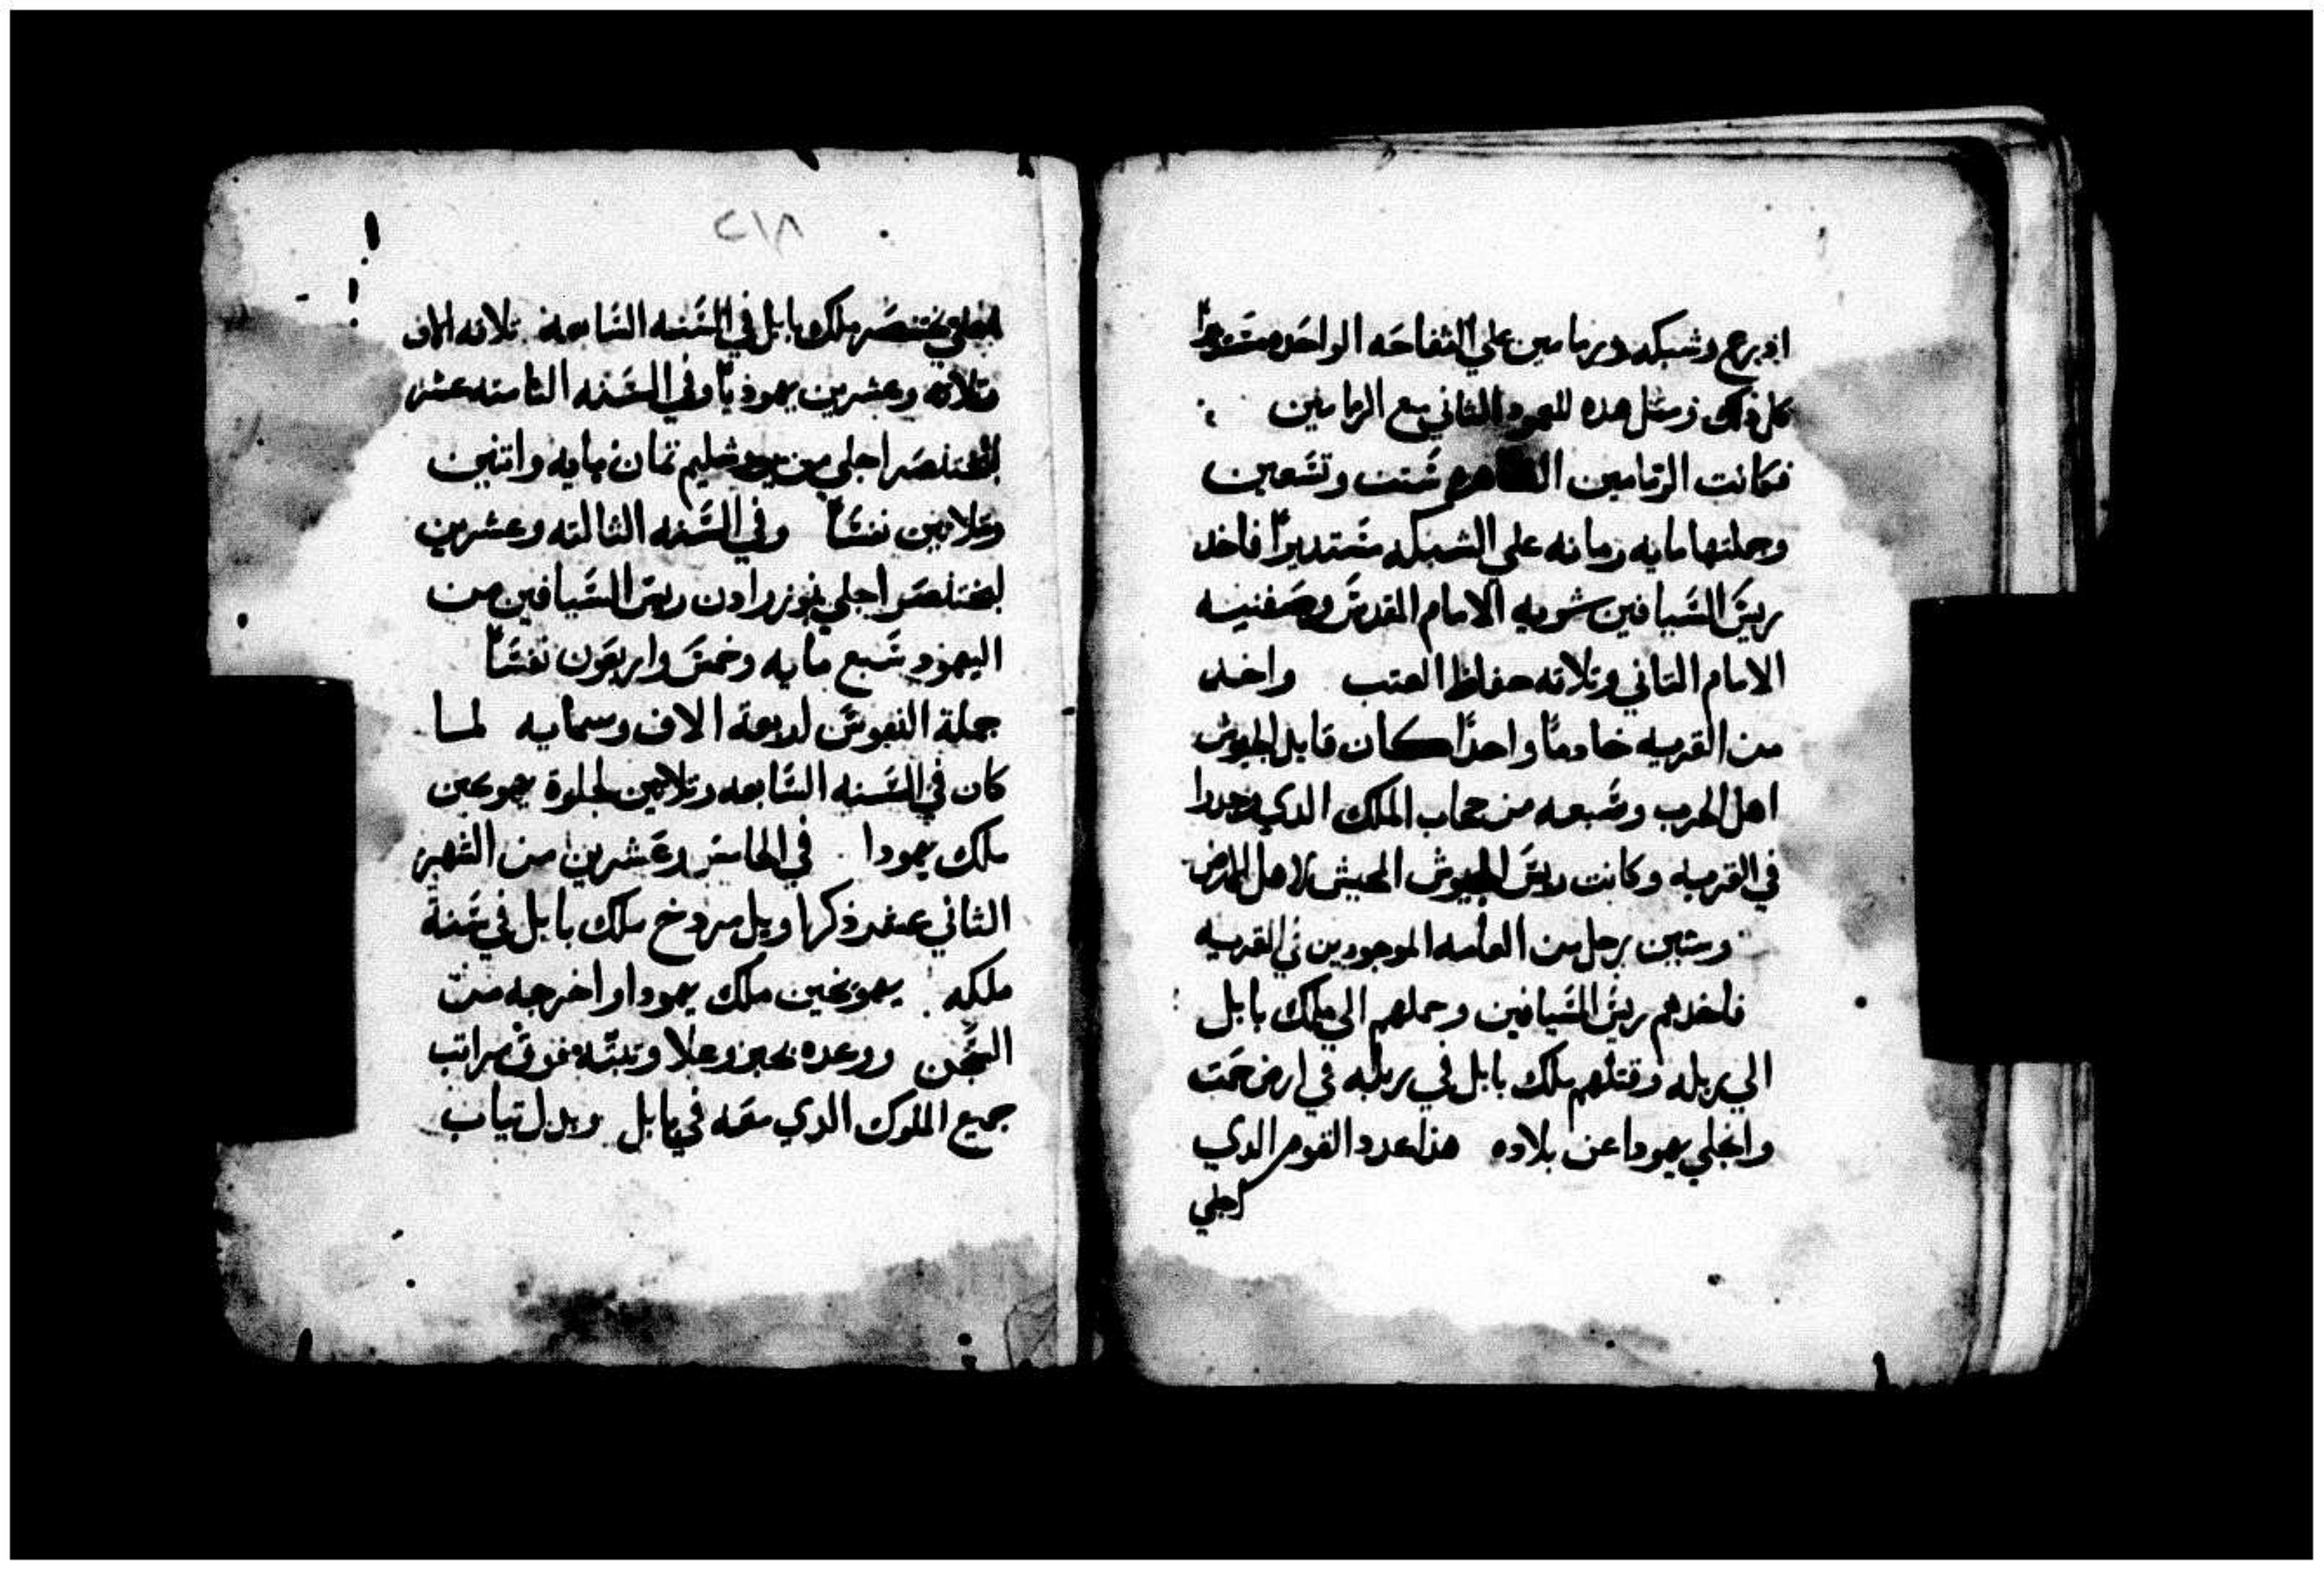 ادرع وشبكه ورمامين علي التفاحه الواحده مستديرا
كل ذلك ومثل هده للعمود الثاني مع الرمامين
فكانت الرمامين الظاهره ستت وتسعين
وجملتها مايه رمانه علي الشبكه مستديرا فاخد
ريس السيافين شريه الامام المقدس وصفنيه
الامام التاني وتلاته حفاظ العتب واخد
من القريه خادما واحدا كان قايد الجيوش
اهل الحرب وسبعه من حجاب الملك الدي وجدوا
في القريه وكانت ريس الجيوش المجيش لاهل الارض
وستين رجل من العامه الموجودين في القريه
فاخدهم ريس السيافين وحملهم الي ملك بابل
الي ربله وقتلهم ملك بابل في ربله في ارض حمت
وانجلي يهودا عن بلاده هذا عدد القوم الدي
اجلي
٢١٨
بختنصر ملك بابل في السنه السابعة تلاته الاف
وتلاته وعشرين يهوديا وفي السنه الثامنه عشر
لبختنصر اجلي من يروشليم تمان مايه واتنين
وتلاتين نفسا وفي السنه الثالته وعشرين
لبختنصر اجلي نبوزرادن ريس السيافين من
اليهود سبع مايه وخمس واربعون نفسا
جملة النفوس اربعة الاف وستمايه لما
كان في السنه السابعه وتلاتين لجلوة يهوعين
ملك يهودا في الخامس وعشرين من الشهر
الثاني عشر ذكر اويل مردخ ملك بابل في سنة
ملكه يهويخين ملك يهودا واخرجه من
السجن ووعده بخير وعلا ورتبته فوق مراتب
جميع الملوك الدي معه في بابل وبدل تياب